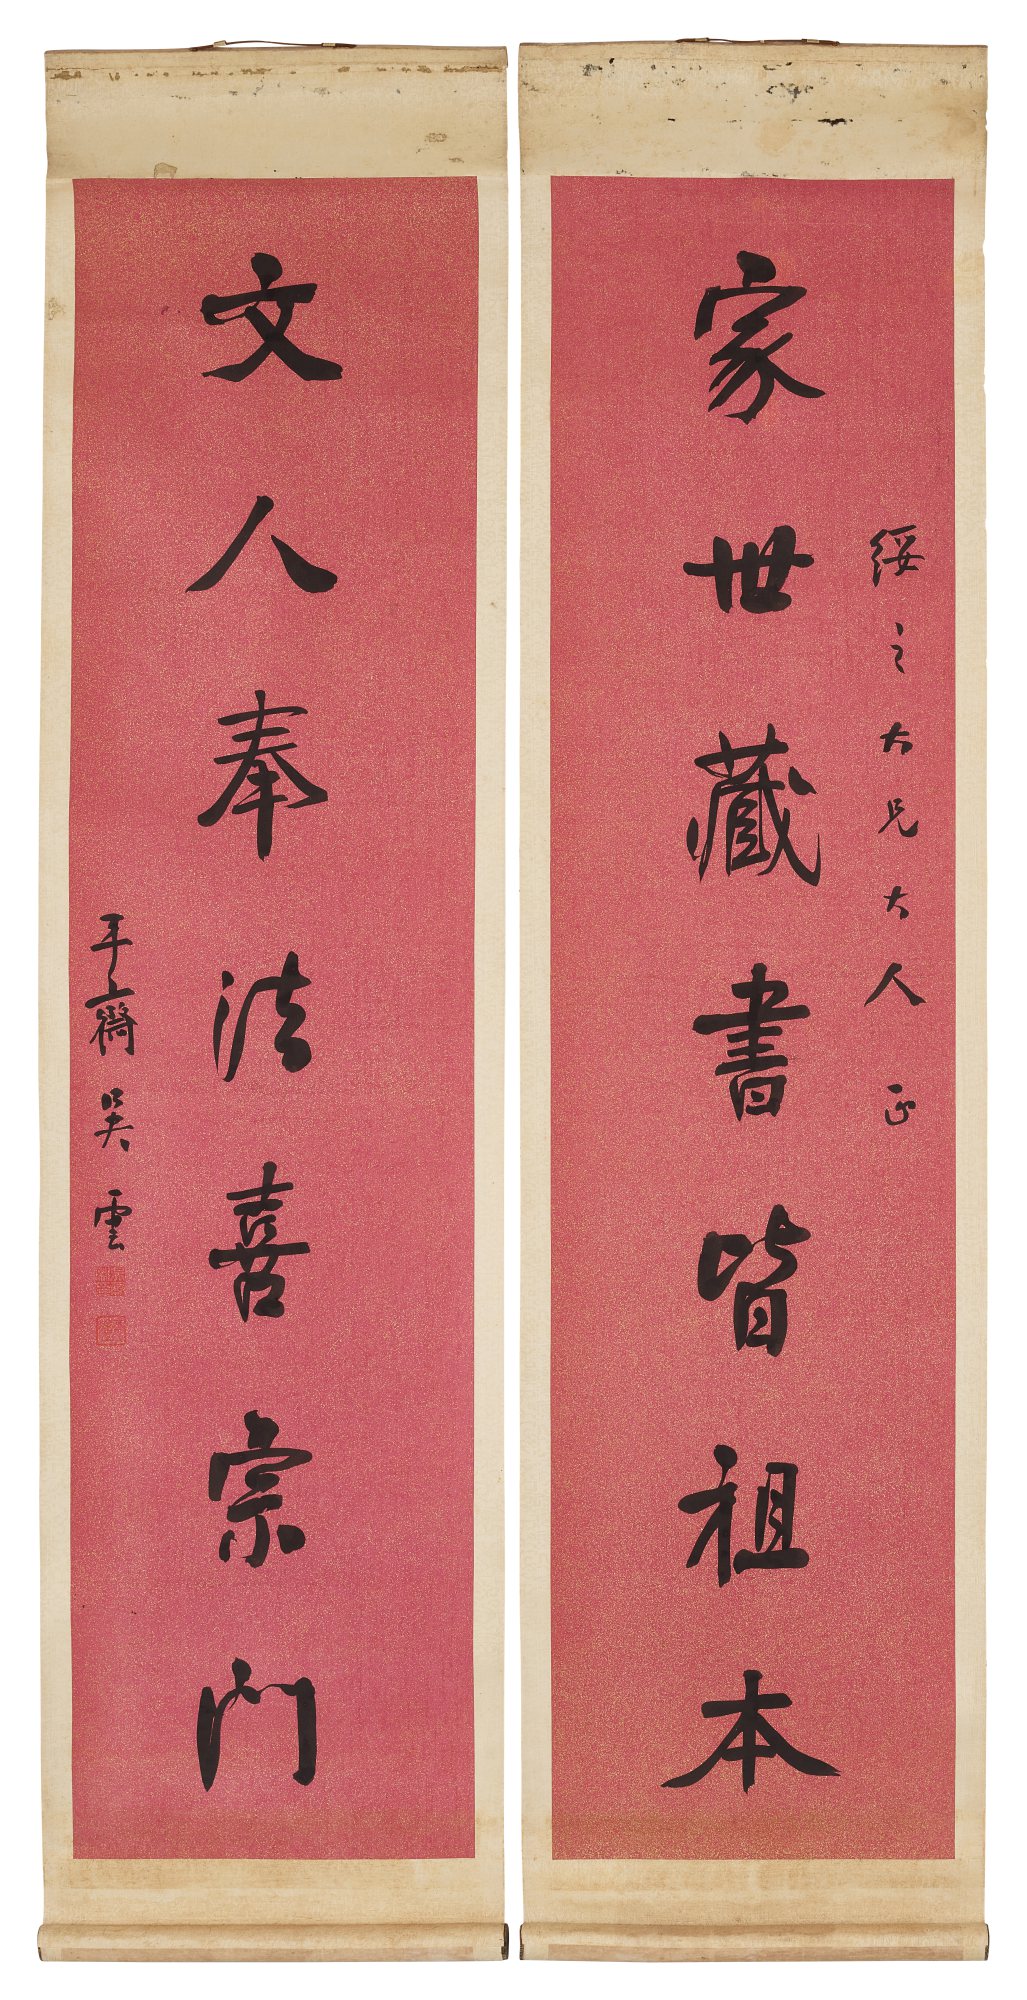 綏之大兄大人正
家世藏書皆祖本
文人奉法喜宗門
平齋吳雲